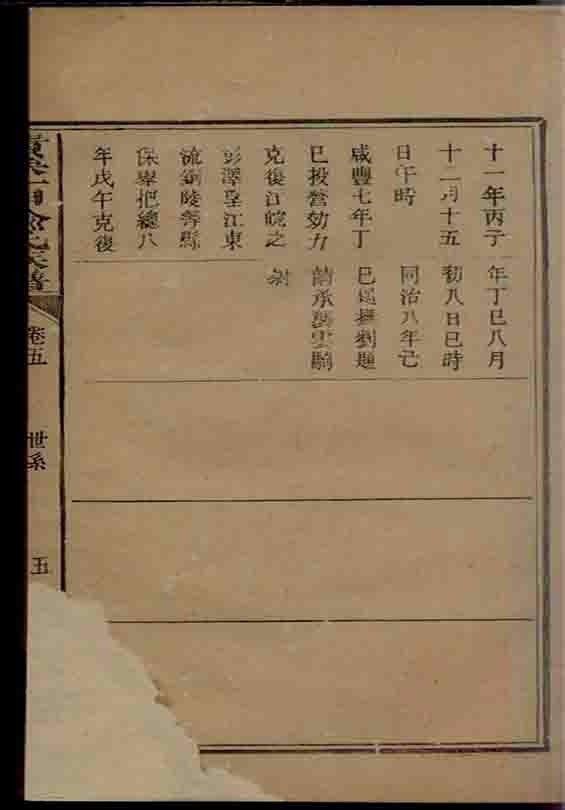 十一年丙子
十二月十五
日午時
咸豐七年丁
巳投營効力
克復江皖之
彭澤望江東
流銅陵等縣
保舉把總八
年戊午克復
年丁巳八月
初八日巳時
同治八年己
巳 撫劉題
請承襲雲騎
尉
氏宗譜
卷五
世系
五